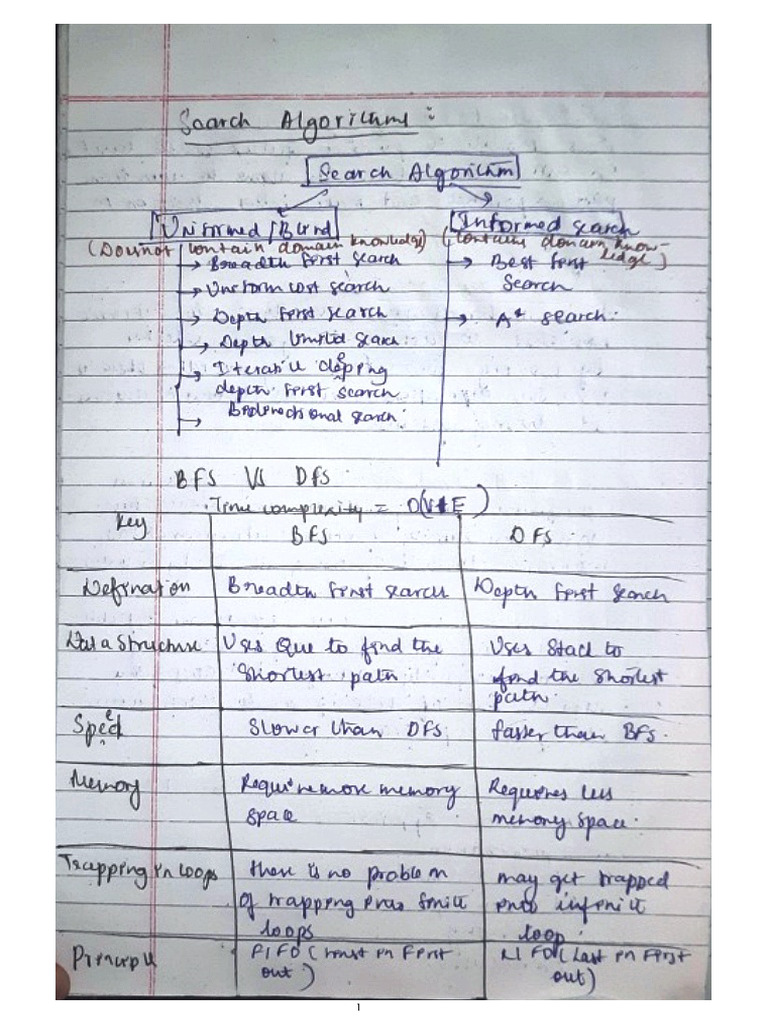 Search Algorithms :
Search Algorithm
Uniformed / Blind
Informed search
(Doesnot contain domain knowledge)
(contains domain know-
ledge)
→ Breadth first search
→ Best first
Search
→ Uniform cost search
→ Depth first search
→ A* search.
→ Depth limited search.
→ Iterative depping
e
depth first search
→ Bidirectional search.
BFS VS DFS
Time complexity = O(V+E)
Key
BFS
DFS
Defination
Breadth first search
Depth first search
Data Structure
Uses Que to find the
shortest path
Uses Stack to
find the shortest
path.
Speed
Slower than DFS
faster than BFS.
Memory
Require more memory
space
Requires less
memory space.
Trapping in loops
there is no problem
of trapping into finite
loops
may get trapped
into infinite
loop.
Principle
FIFO (first in first
out)
LIFO (last in first
out)
1